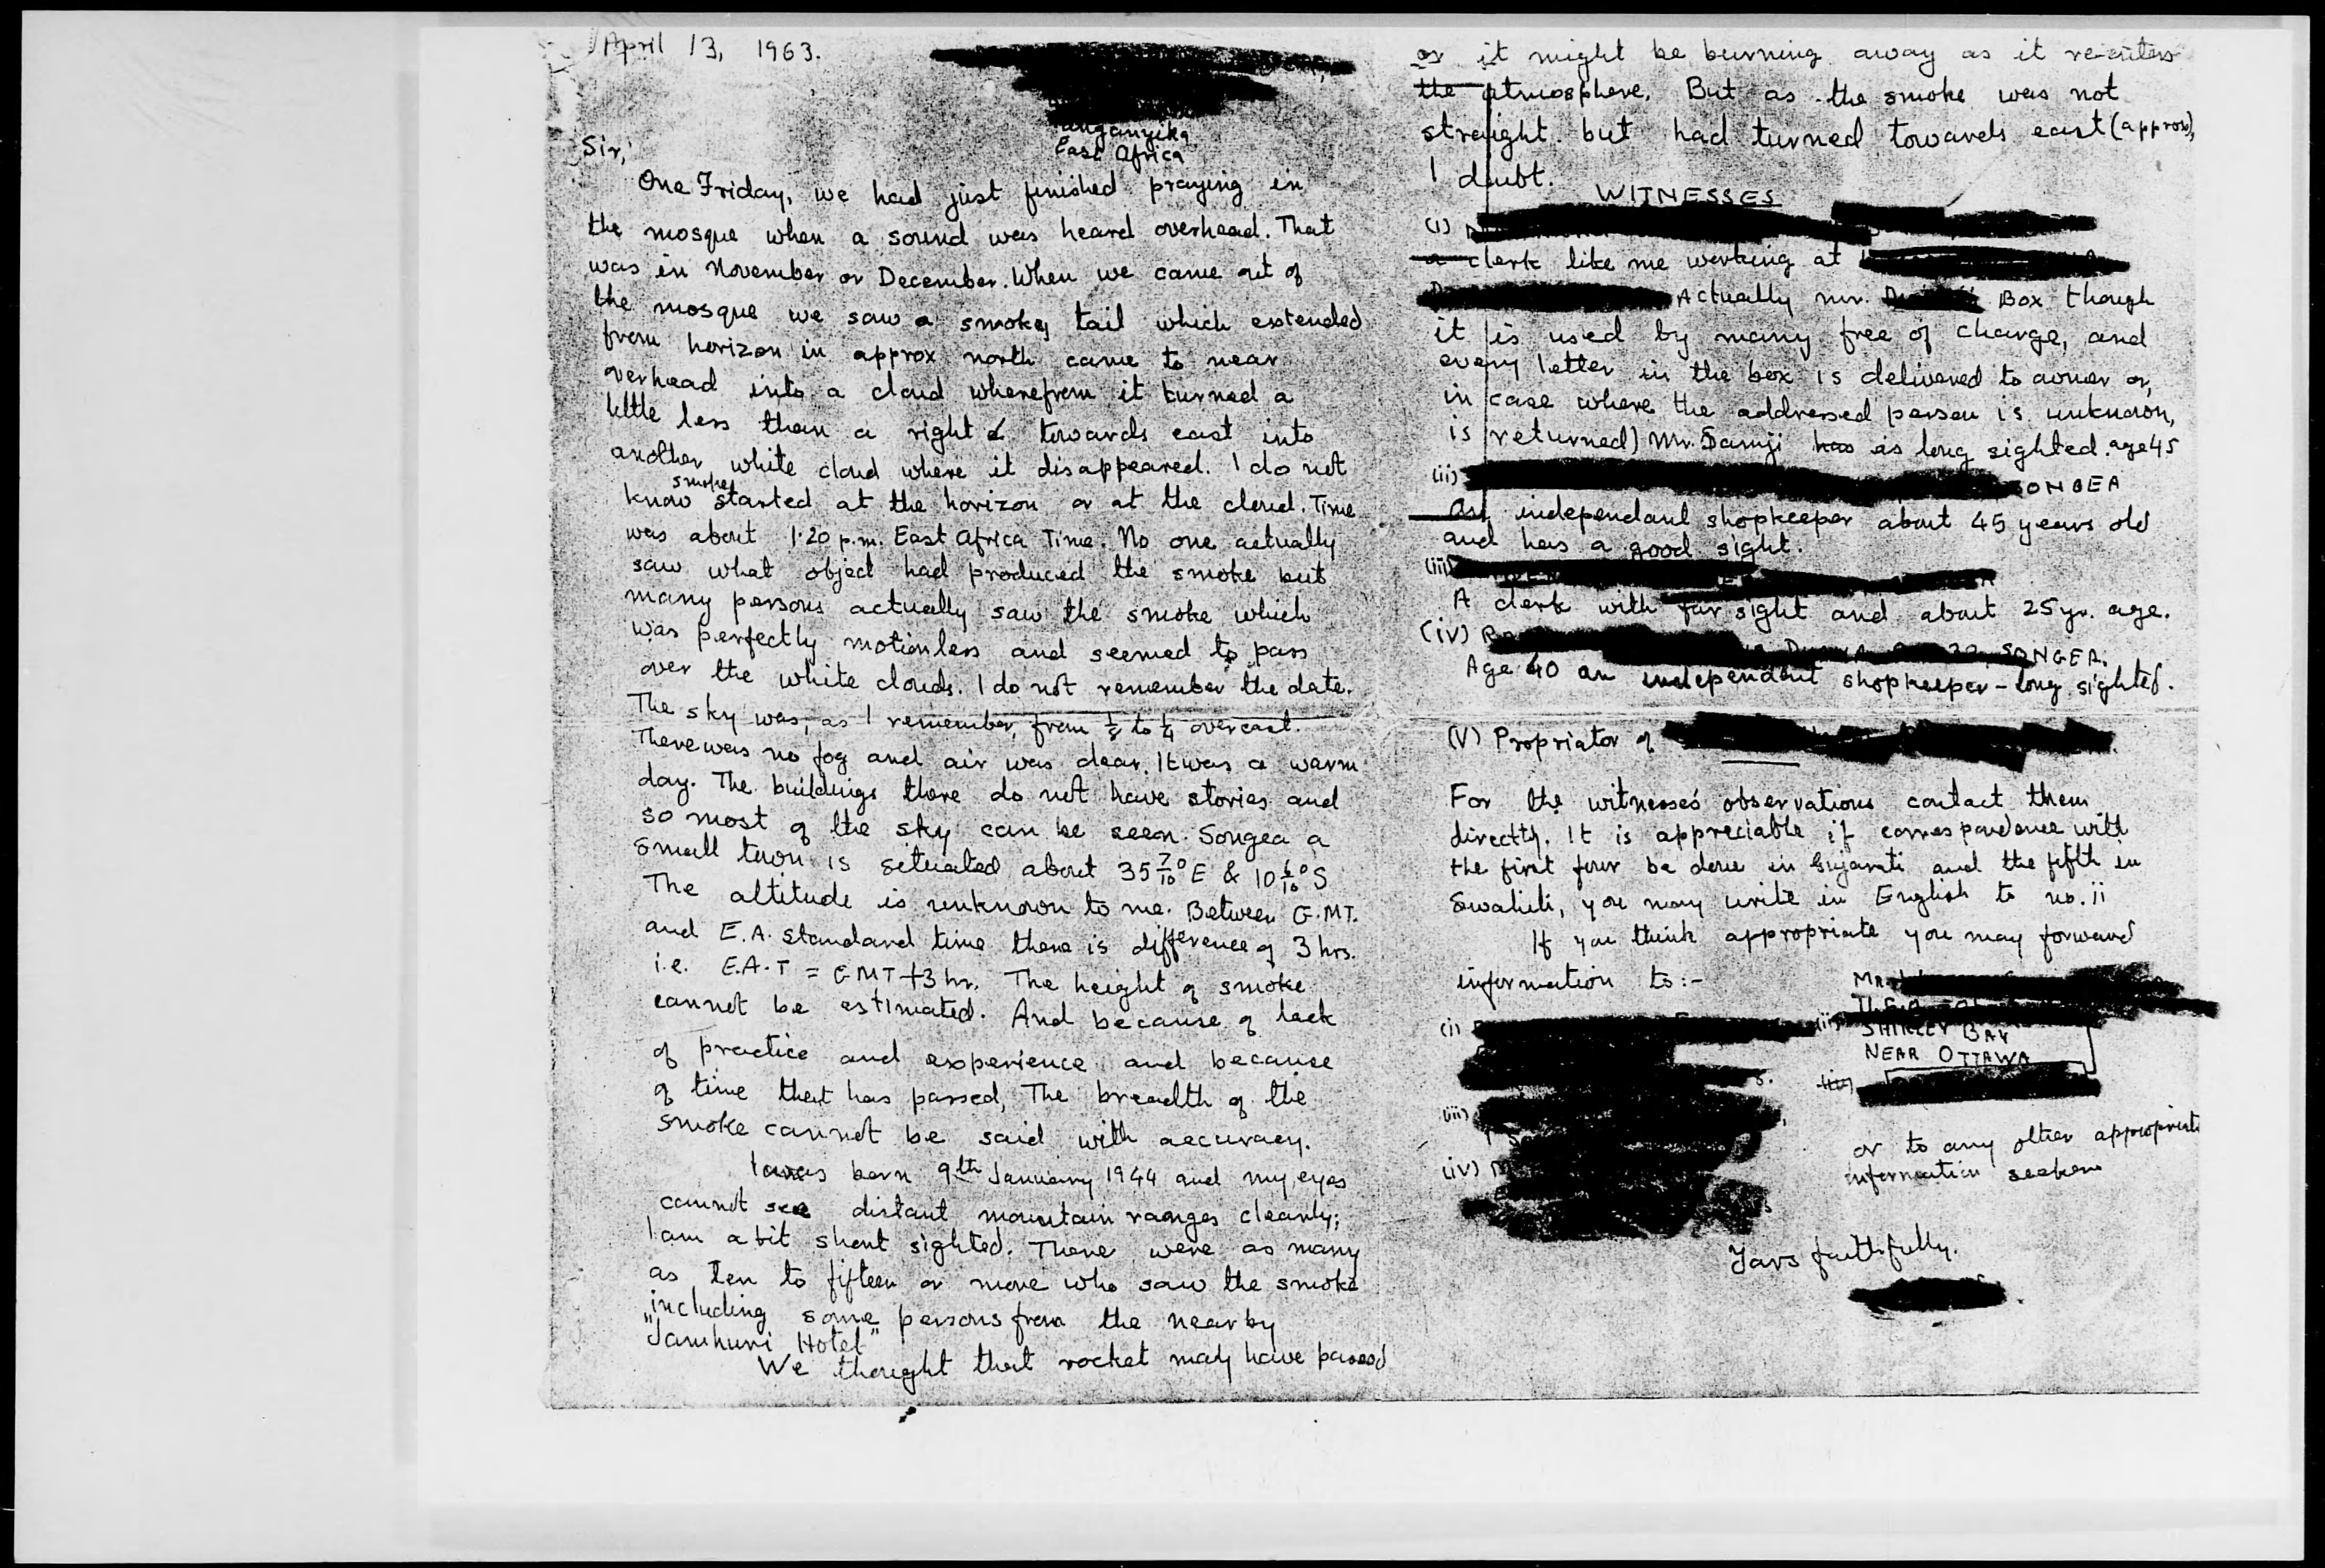 April 13, 1963.
Tanganyika
East Africa
Sir,
One Friday, we had just finished praying in
the mosque when a sound was heard overhead. That
was in November or December. When we came out of
the mosque we saw a smokey tail which extended
from horizon in approx north came to near
overhead into a cloud wherefrom it turned a
little less than a right ∠ towards east into
another white cloud where it disappeared. I do not
know smoke started at the horizon or at the cloud. Time
was about 1.20 p.m. East Africa Time. No one actually
saw what object had produced the smoke but
many persons actually saw the smoke which
was perfectly motionless and seemed to pass
over the white clouds. I do not remember the date.
The sky was, as I remember, from 1/8 to 1/4 overcast.
There was no fog and air was clear. It was a warm
day. The buildings there do not have stories and
so most of the sky can be seen. Songea a
small town is situated about 35 7/10° E & 10 6/10° S
The altitude is unknown to me. Between G.M.T.
and E.A. standard time there is difference of 3 hrs.
i.e. E.A.T = GMT+3 hr. The height of smoke
cannot be estimated. And because of lack
of practice and experience and because
of time that has passed, The breadth of the
smoke cannot be said with accuracy.
I was born 9th January 1944 and my eyes
cannot see distant mountain ranges clearly;
I am a bit short sighted. There were as many
as ten to fifteen or more who saw the smoke
including some persons from the nearby
"Jamhuri Hotel"
We thought that rocket may have passed
or it might be burning away as it re-enters
the atmosphere. But as the smoke was not
straight but had turned towards east (approx),
I doubt.
WITNESSES
(i)
a clerk like me working at
Actually mr. Box though
it is used by many free of charge, and
every letter in the box is delivered to owner or,
in case where the addressed person is unknown,
is returned) Mr. Samji has is long sighted. age 45
(ii) SONGEA
An independant shopkeeper about 45 years old
and has a good sight.
(iii)
A clerk with far sight and about 25 yr. age.
(iv) SONGEA.
Age 40 an independant shopkeeper - long sighted.
(V) Propriator of
For the witnesses observations contact them
directly. It is appreciable if correspondence with
the first four be done in Gujarati and the fifth in
Swahili, you may write in English to no. ii
If you think appropriate you may forward
information to:-
Mr.
(i)
(ii)
SHIRLEY BAY
NEAR OTTAWA
(iii)
(iii)
or to any other appropriate
information seekers
(iv)
Yours faithfully.